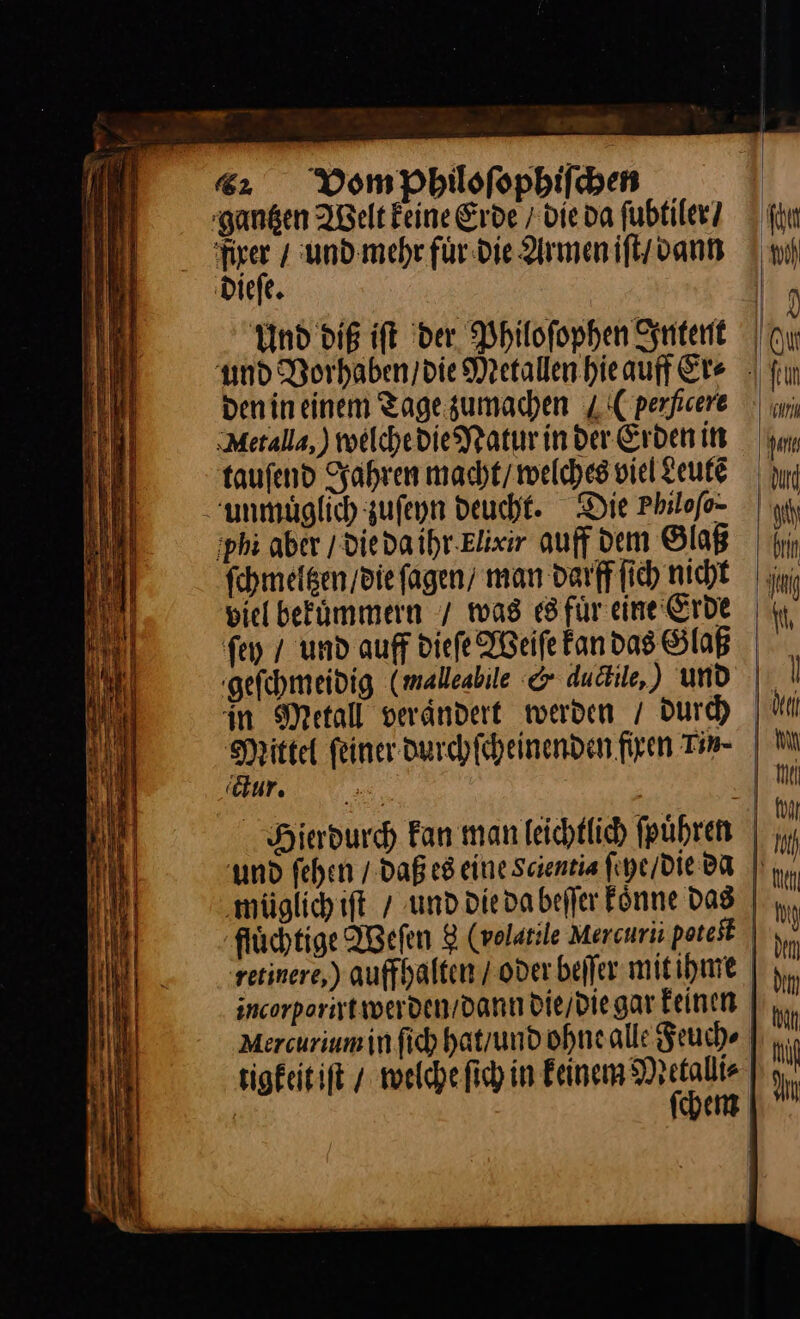 62 Vom Philoſophiſchen
gantzen Welt keine Erde / die da ſubtiler/
fixer / und mehr fuͤr die Armen iſt/ dann
dieſe.
Und diß iſt der Philoſophen Intent
und Vorhaben/ die Metallen hie auff Er⸗
den in einem Tage zumachen / ( perficere
Metalla,) welche die Natur in der Erden in
tauſend Jahren macht/ welches viel Leutē
unmuͤglich zuſeyn deucht. Die Philoſo-
phi aber / die da ihr Elixir auff dem Glaß
ſchmeltzen/ die ſagen/ man darff ſich nicht
viel bekuͤmmern / was es fuͤr eine Erde
ſey / und auff dieſe Weiſe kan das Glaß
geſchmeidig (malleabile & ductile,) und
in Metall veraͤndert werden / durch
Mittel ſeiner durchſcheinenden fixen Tin-
ctur.
Hierdurch kan man leichtlich ſpuͤhren
und ſehen / daß es eine Scientia ſeye/ die da
müglich iſt / und die da beſſer koͤnne das
fluͤchtige Weſen ☿ (volatile Mercurii potest
retinere,) auffhalten / oder beſſer mit ihme
incorporirt werden/ dann die/ die gar keinen
Mercurium in ſich hat/ und ohne alle Feuch⸗
tigkeit iſt / welche ſich in keinem Metalli⸗
ſchem